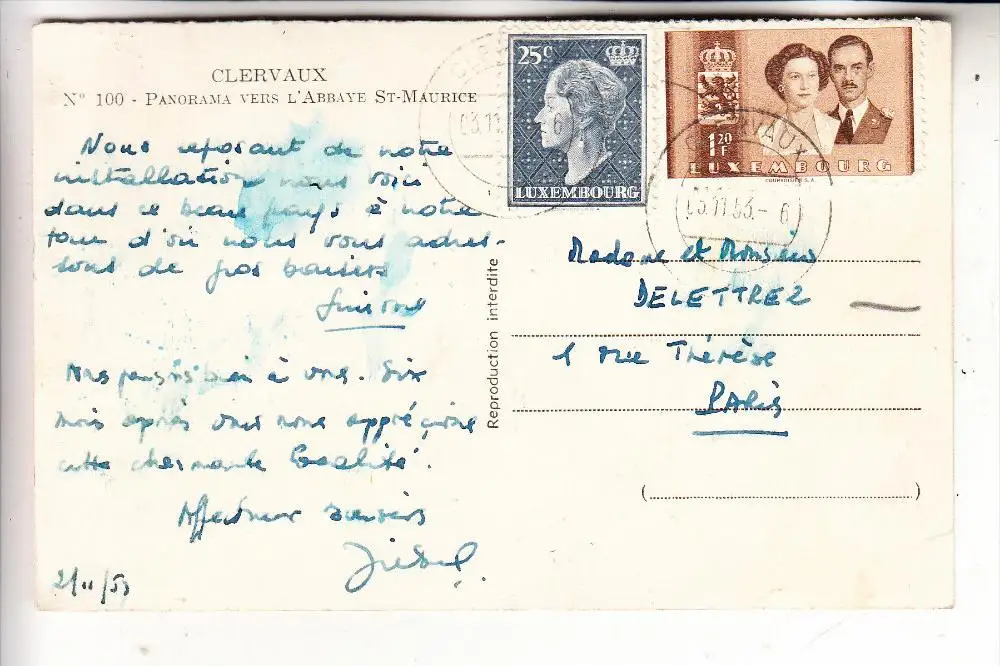 CLERVAUX
N° 100 - PANORAMA VERS L'ABBAYE ST-MAURICE
Nous reposant de notre
installation nous voici
dans ce beau pays à notre
tour d'où nous vous adres-
sons de gros baisers
Nous pensons bien à vous. Six
mois après vous nous apprécions
cette charmante localité.
Affectueux baisers
2/11/53
Reproduction interdite
25c
LUXEMBOURG
1F20
LUXEMBOURG
COURVOISIER S.A.
CLERVAUX
03.11.53.- 6
Madame et Monsieur
DELETTREZ
1 rue Thérèse
PARIS